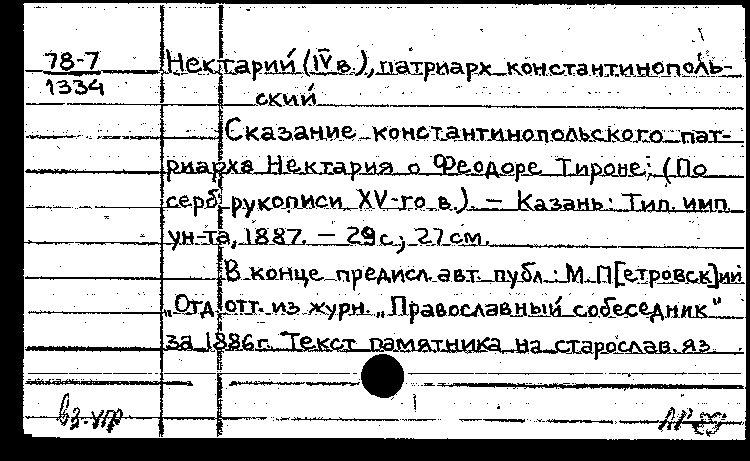 78-7
1334
Нектарий (IV в.), патриарх константинополь-
ский
Сказание константинопольского пат-
риарха Нектария о Феодоре Тироне; (По
серб. рукописи XV-го в.). — Казань: Тип. имп.
ун-та, 1887. — 29 с.; 27 см.
В конце предисл. авт. публ.: М. П[етровск]ий
„Отд. отт. из журн. „Православный собеседник"
за 1886 г. Текст памятника на старослав. яз.
вз. упр.